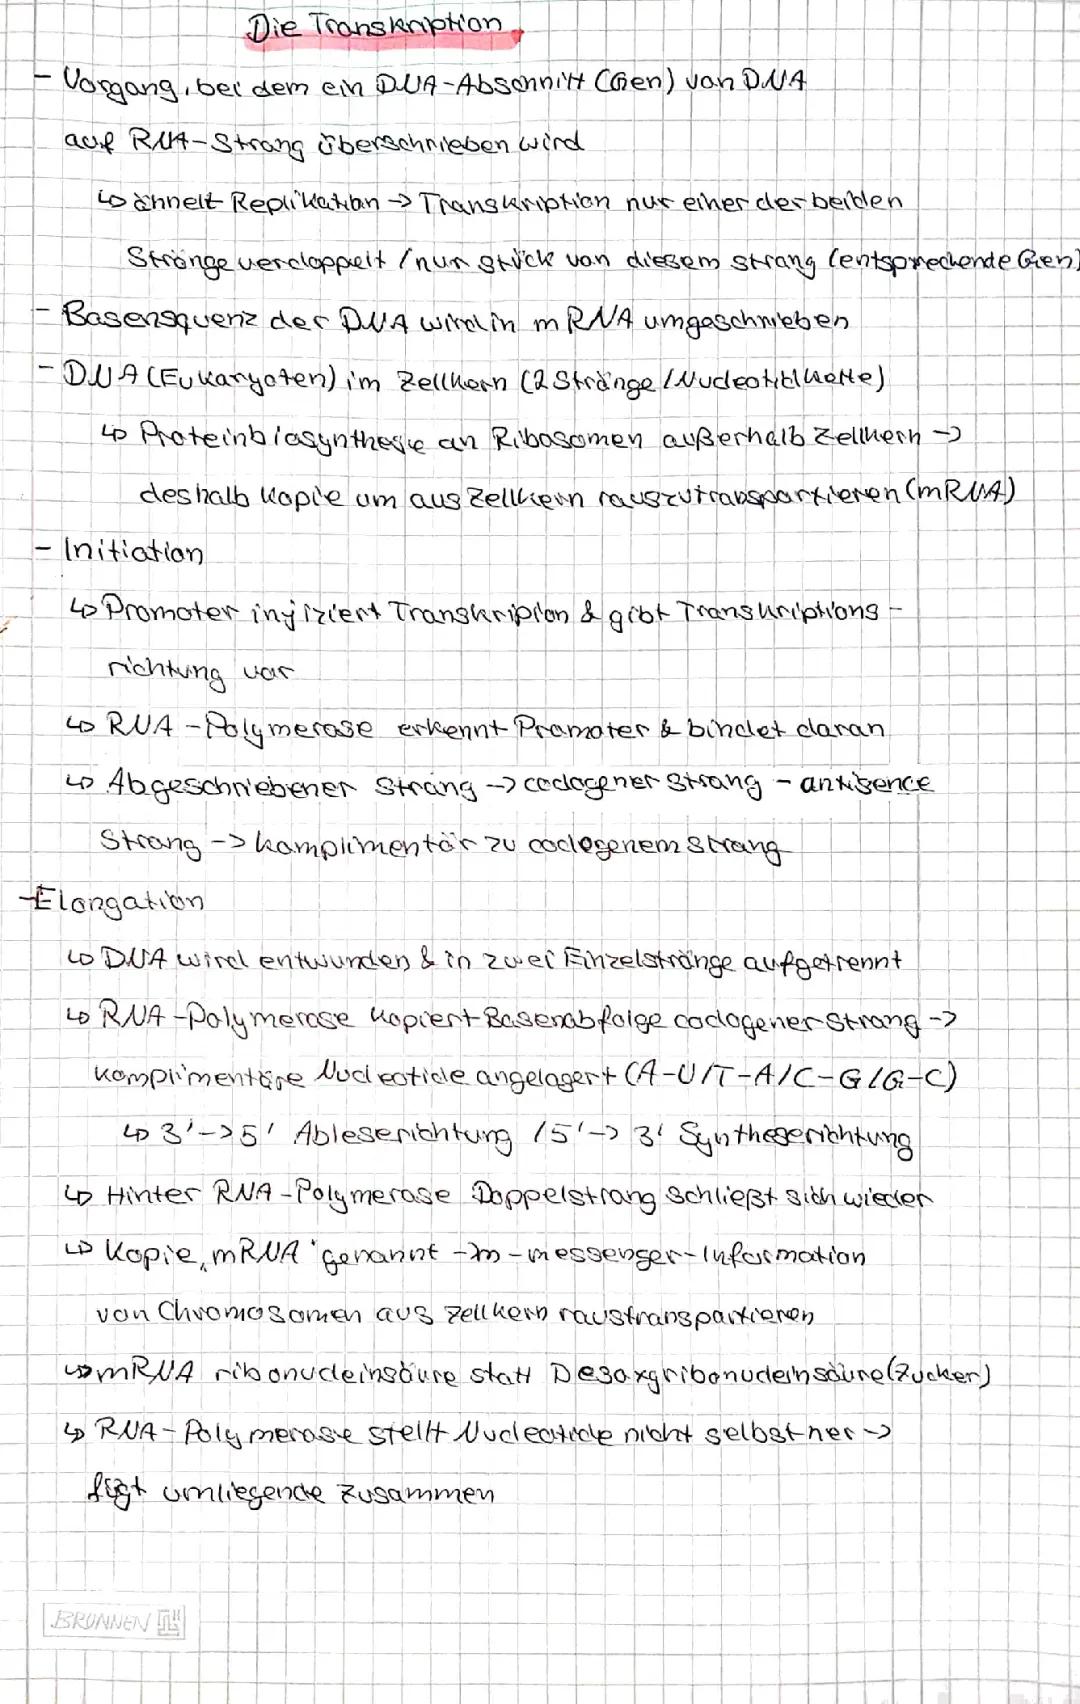 Die Transkription
- Vorgang, bei dem ein DNA-Abschnitt (Gen) von DNA
auf RNA-Strang überschrieben wird
↳ ähnelt Replikation -> Transkription nur einer der beiden
Stränge verdoppelt / nur Stück von diesem Strang (entsprechende Gen)
- Basensquenz der DNA wird in mRNA umgeschrieben
- DNA (Eukaryoten) im Zellkern (2 Stränge / Nucleotidkette)
↳ Proteinbiosynthese an Ribosomen außerhalb Zellkern ->
deshalb Kopie um aus Zellkern rauszutransportieren (mRNA)
- Initiation
↳ Promoter injiziert Transkription & gibt Transkriptions-
richtung vor
↳ RNA-Polymerase erkennt Promoter & bindet daran
↳ Abgeschriebener Strang -> codogener Strang - antisence
Strang -> komplimentär zu codogenem Strang
- Elongation
↳ DNA wird entwunden & in zwei Einzelstränge aufgetrennt
↳ RNA-Polymerase kopiert Basenabfolge codogener Strang ->
komplimentäre Nucleotide angelagert (A-U/T-A/C-G/G-C)
↳ 3'->5' Ableserichtung / 5'->3' Syntheserichtung
↳ Hinter RNA-Polymerase Doppelstrang schließt sich wieder
↳ Kopie, mRNA genannt -> m-messenger-Information
von Chromosomen aus Zellkern raustransportieren
↳ mRNA ribonucleinsäure statt Desoxyribonucleinsäure (Zucker)
↳ RNA-Polymerase stellt Nucleotide nicht selbst her ->
fügt umliegende zusammen
BRUNNEN